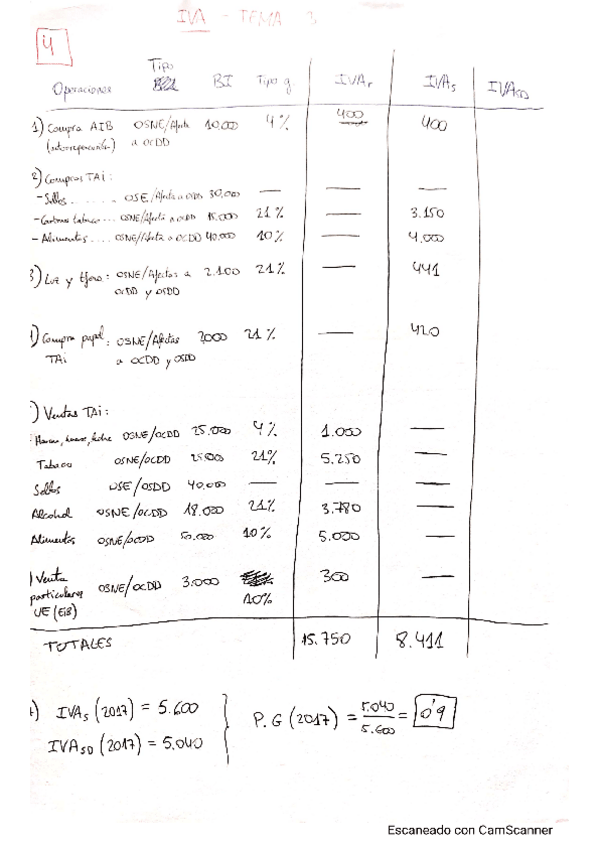 IVA - TEMA 3
4
Operaciones Tipo BI Tipo g IVAr IVAs IVASD
1) Compra AIB OSNE/Afecta 10.000 4% 400 400
(autorrepercusión) a OCDD
2) Compras TAI:
- Sellos........ OSE/Afecta a OSDD 30.000 — — —
- Cartones tabaco... OSNE/Afecta a OCDD 15.000 21% — 3.150
- Alimentos.... OSNE/Afecta a OCDD 40.000 10% — 4.000
3) Luz y tfono: OSNE/Afectas a 2.100 21% — 441
OCDD y OSDD
) Compra papel: OSNE/Afectas 2000 21% — 420
TAI a OCDD y OSDD
) Ventas TAI:
Harina, huevos, leche OSNE/OCDD 25.000 4% 1.000 —
Tabaco OSNE/OCDD 25.000 21% 5.250 —
Sellos OSE/OSDD 40.000 — — —
Alcohol OSNE/OCDD 18.000 21% 3.780 —
Alimentos OSNE/OCDD 50.000 10% 5.000 —
) Venta OSNE/OCDD 3.000 300 —
particulares 10%
UE (EIB)
TOTALES 15.750 8.411
) IVAs (2017) = 5.600
IVASD (2017) = 5.040
P.G (2017) = 5.040/5.600 = 0'9
Escaneado con CamScanner